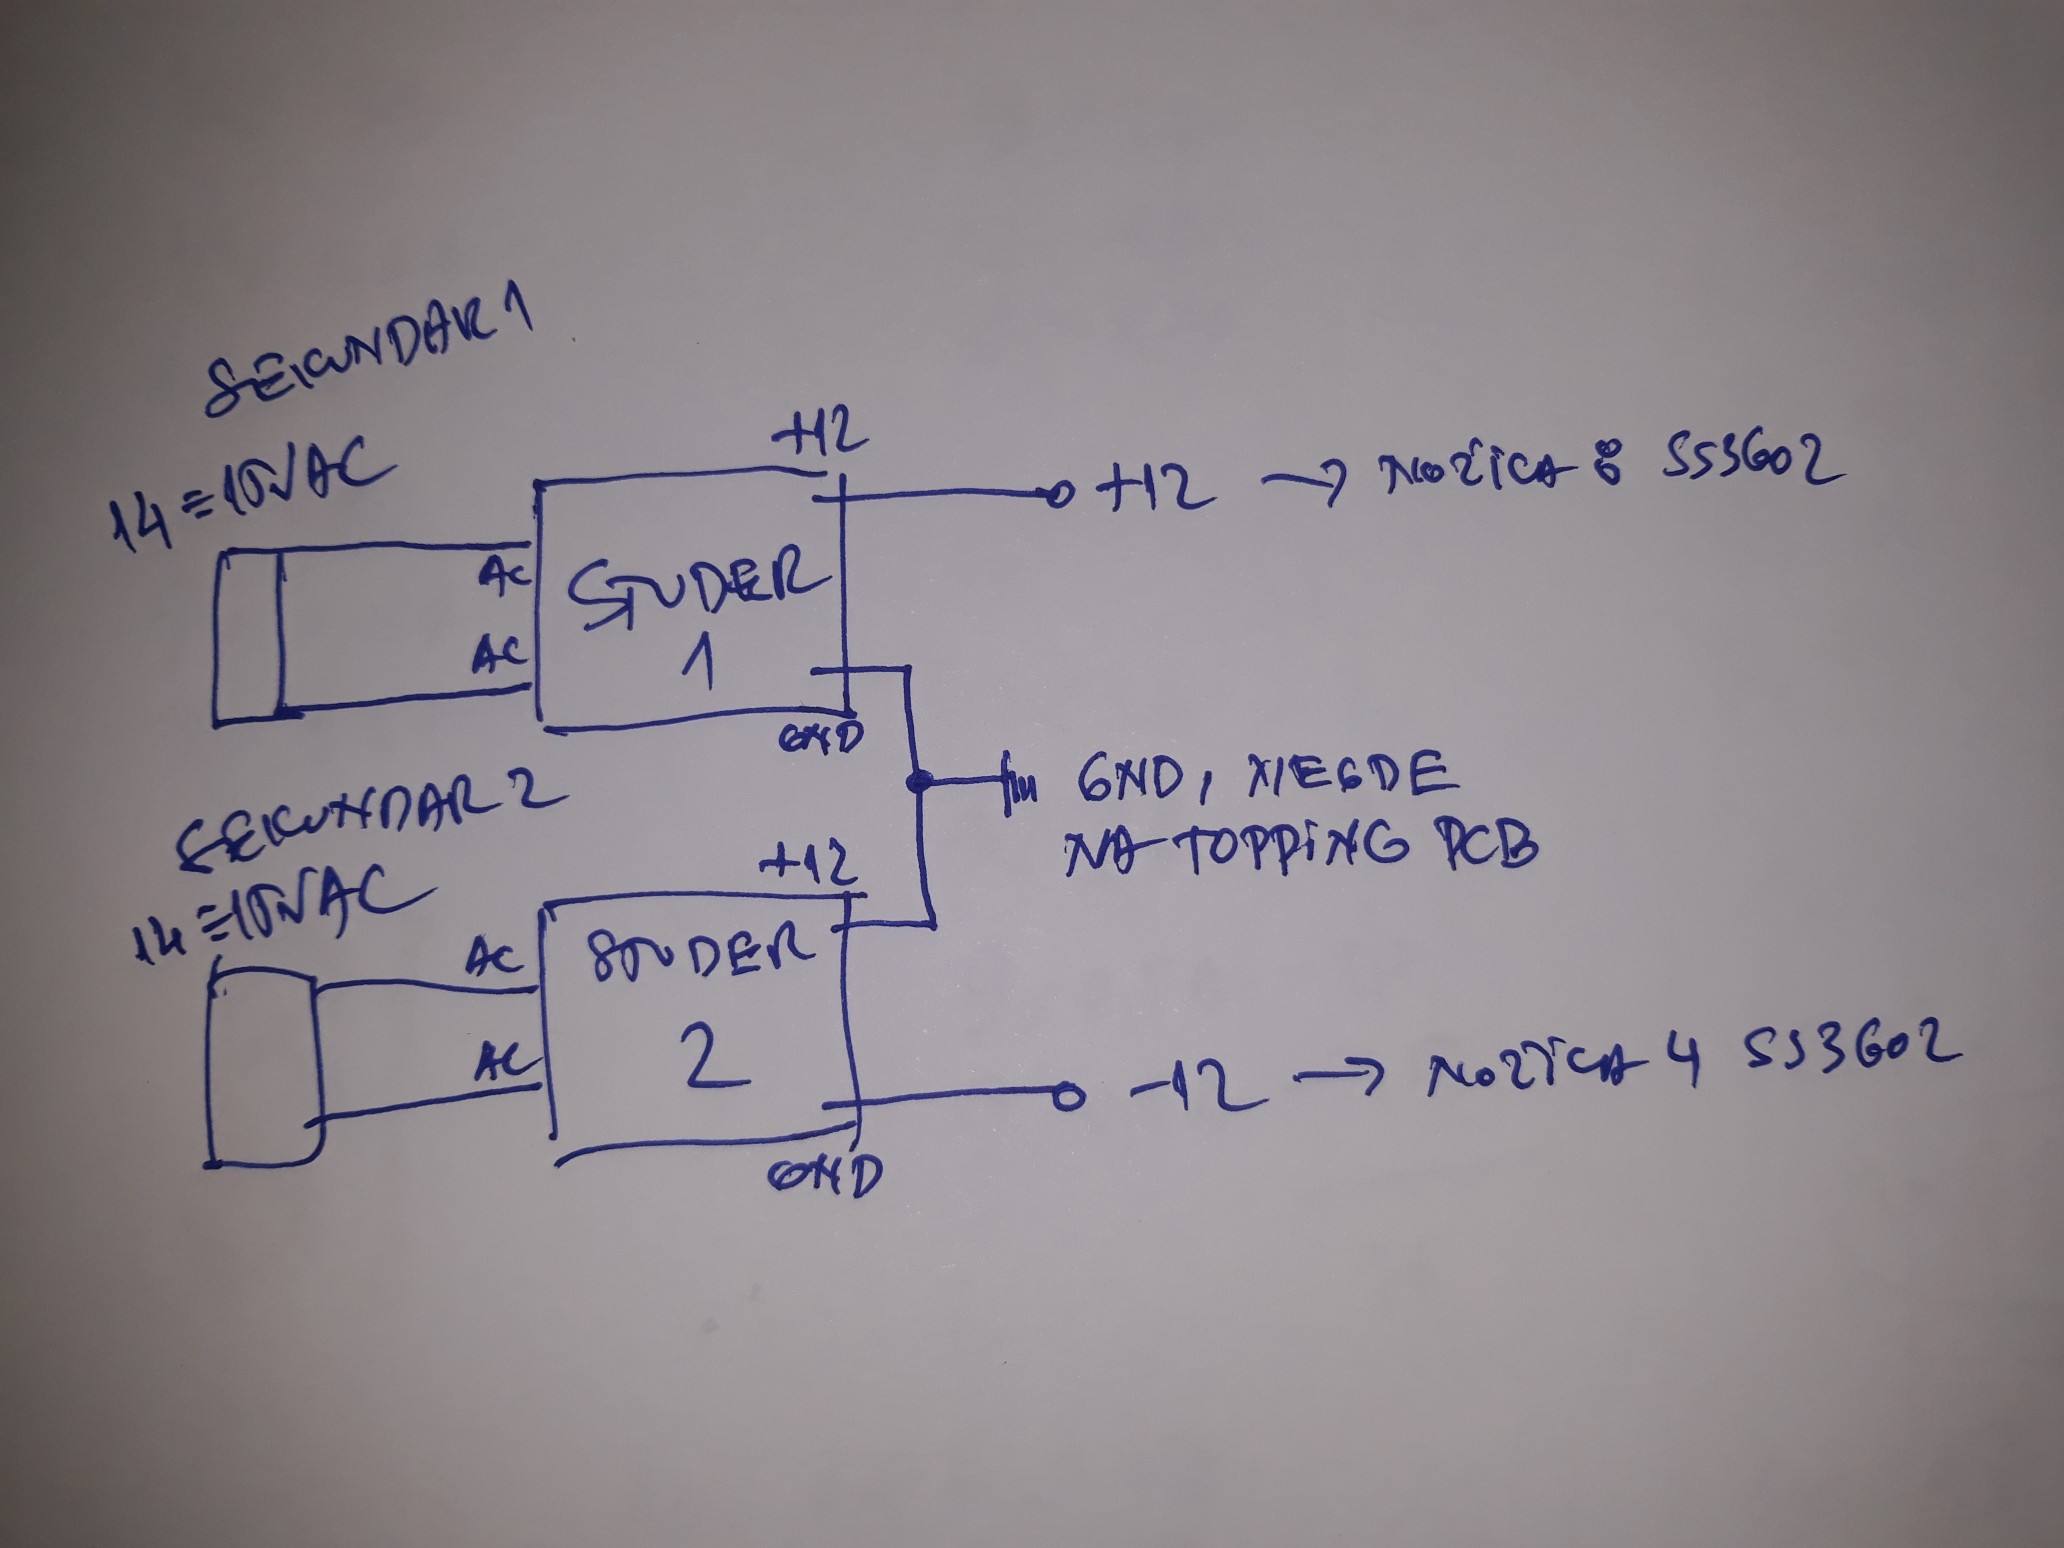 SEKUNDAR 1
14=15VAC
+12
+12 → NOŽICA 8 SS3602
AC
STUDER
AC
1
GND
GND, NEGDE
NA TOPPING PCB
SEKUNDAR 2
14=15VAC
+12
AC
STUDER
AC
2
-12 → NOŽICA 4 SS3602
GND